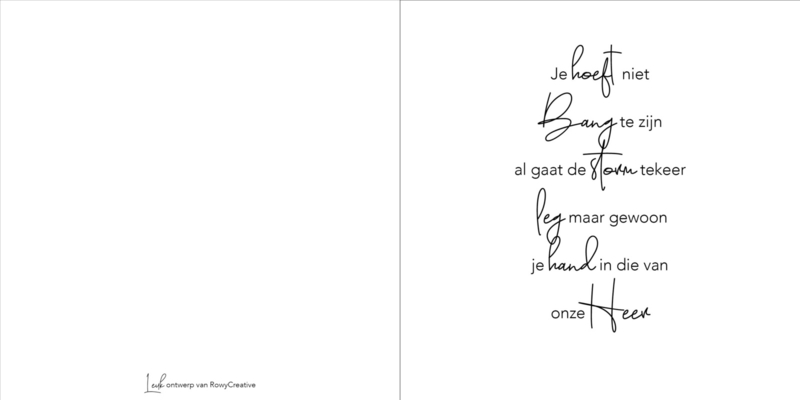 Je hoeft niet
Bang te zijn
al gaat de storm tekeer
leg maar gewoon
je hand in die van
onze Heer
Leuk ontwerp van RowyCreative